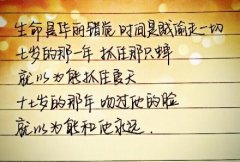 生命是华丽错觉 时间是贼偷走一切
七岁的那一年 抓住那只蝉
就以为能抓住夏天
十七岁的那年 吻过他的脸
就以为能和他永远.